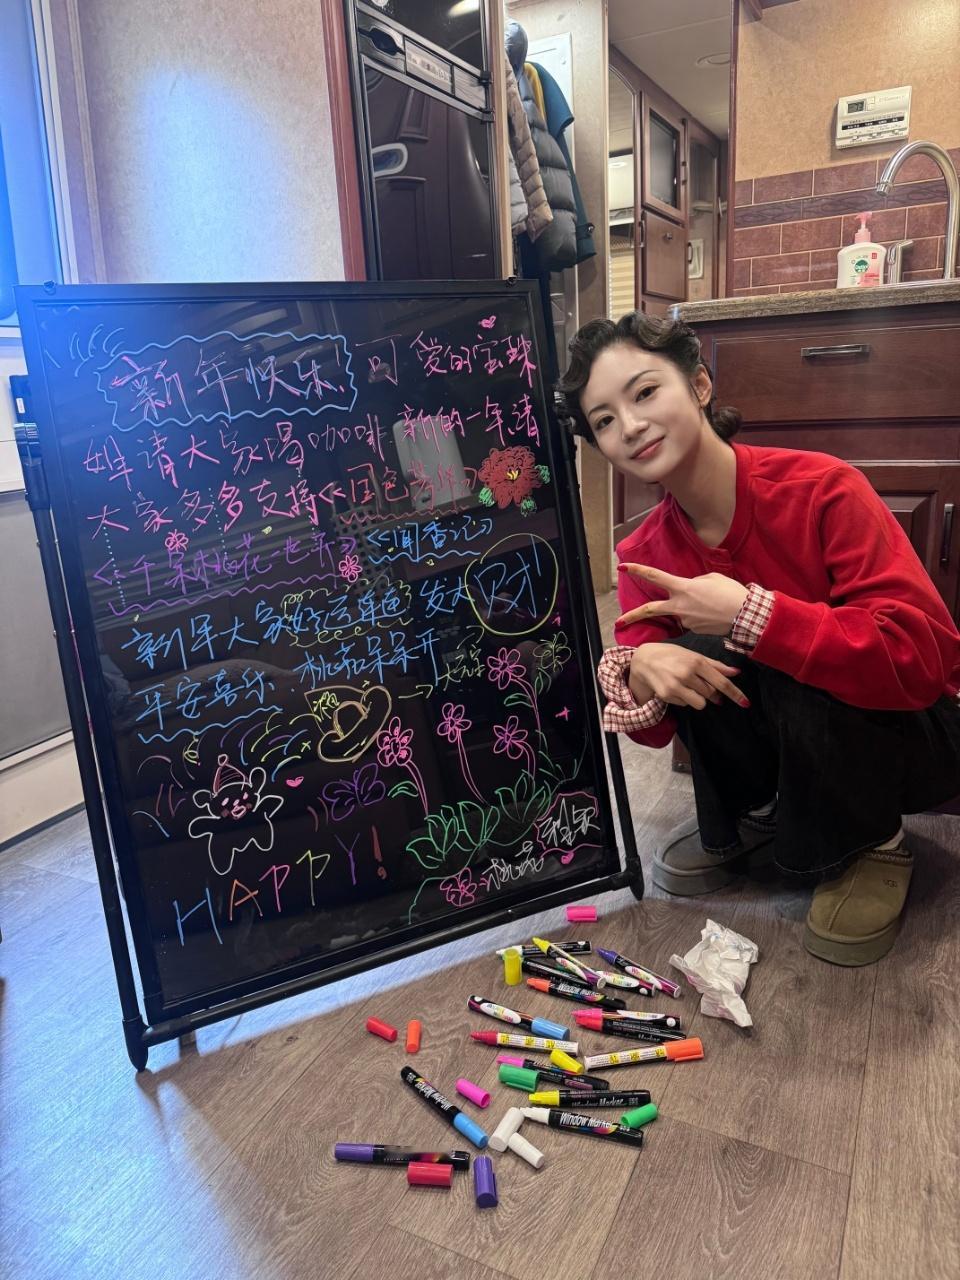 新年快乐！可爱的宝珠
姐请大家喝咖啡.新的一年请
大家多多支持《国色芳华》
《千朵桃花一世开》《闻香记》
新年大家好运连连 发大财！
平安喜乐.桃花朵朵开
HAPPY!
桃花
Window Marker
Window Marker
Window Marker
Window Marker